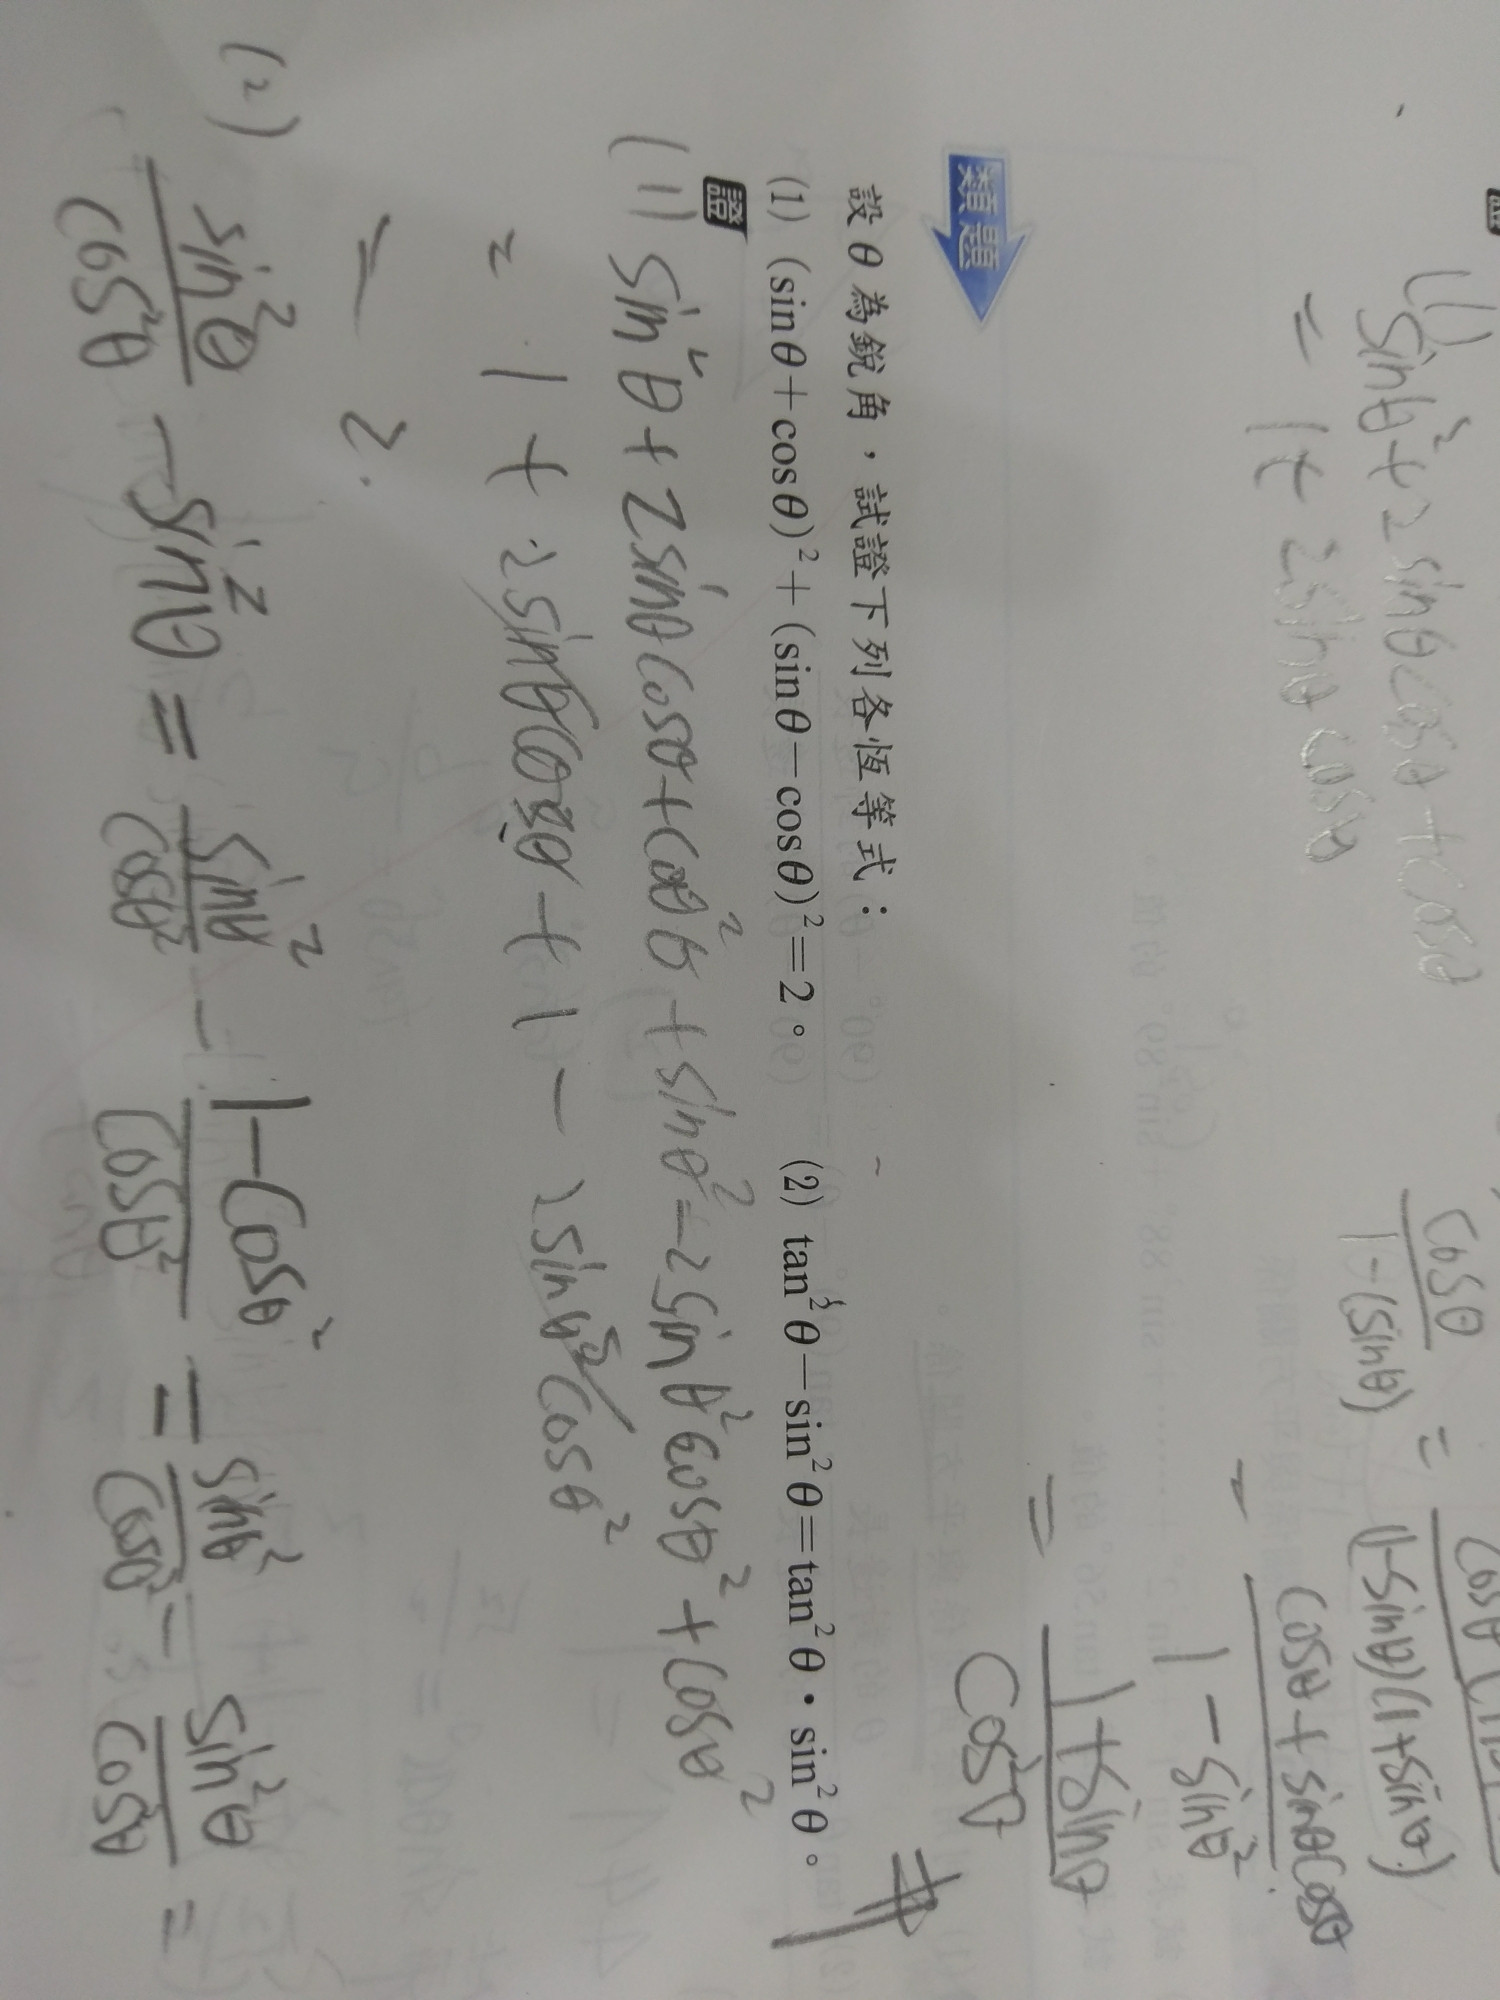 (1) sinθ²+2sinθcosθ+cosθ
= 1+2sinθcosθ
cosθ/1-(sinθ) =
(1-sinθ)(1+sinθ)
= cosθ+sinθcosθ/1-sinθ²
= 1+sinθ/cosθ
類題
設θ為銳角，試證下列各恆等式：
(1) (sinθ+cosθ)²+(sinθ-cosθ)²=2。 (2) tan²θ-sin²θ=tan²θ·sin²θ。
證
(1) sin²θ+2sinθcosθ+cos²θ+sinθ²-2sinθ²cosθ²+cosθ²
= 1+2sinθcosθ+1-2sinθ²cosθ²
= 2.
(2) sin²θ/cos²θ - sin²θ = sinθ²/cosθ² - 1-cosθ²/cosθ² = sinθ²/cosθ² - sin²θ/cos²θ =